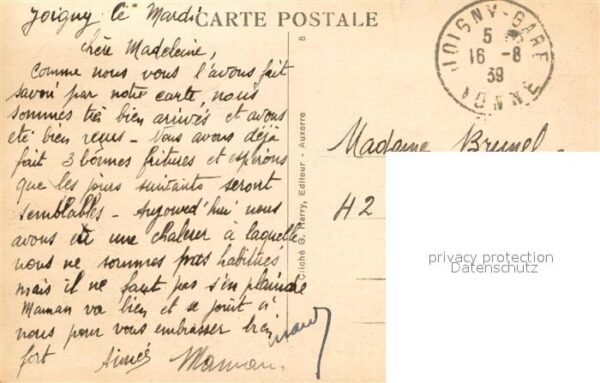 Joigny le Mardi
CARTE POSTALE
chère Madeleine,
Comme nous vous l'avons fait
savoir par notre carte, nous
sommes très bien arrivés et avons
été bien reçus - Nous avons déjà
fait 3 bonnes fritures et espérons
que les jours suivants seront
semblables - Aujourd'hui nous
avons eu une chaleur à laquelle
nous ne sommes pas habitués
mais il ne faut pas s'en plaindre
Maman va bien et se joint à
nous pour vous embrasser bien
fort
Aimée Maman
8
Cliché G. Harry, Editeur - Auxerre
JOIGNY-GARE
5
16-8
39
YONNE
Madame Brunel
H2
privacy protection
Datenschutz